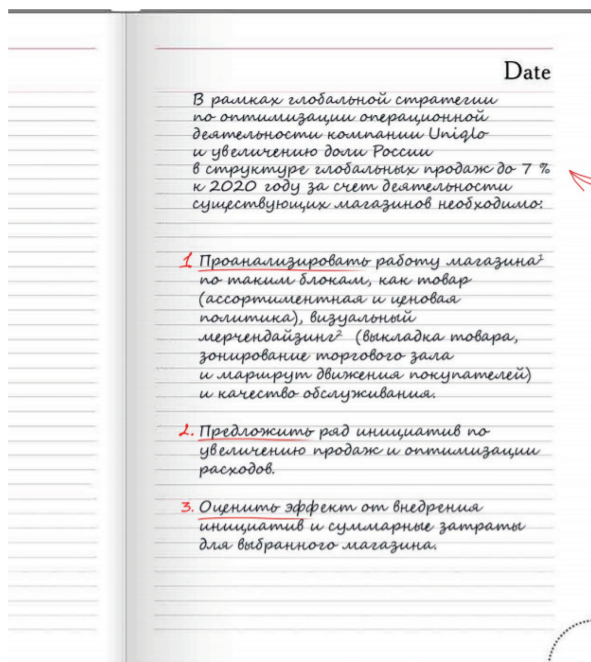 Date
В рамках глобальной стратегии
по оптимизации операционной
деятельности компании Uniqlo
и увеличению доли России
в структуре глобальных продаж до 7 %
к 2020 году за счет деятельности
существующих магазинов необходимо:
1 Проанализировать работу магазина¹
по таким блокам, как товар
(ассортиментная и ценовая
политика), визуальный
мерчендайзинг² (выкладка товара,
зонирование торгового зала
и маршрут движения покупателей)
и качество обслуживания.
2. Предложить ряд инициатив по
увеличению продаж и оптимизации
расходов.
3. Оценить эффект от внедрения
инициатив и суммарные затраты
для выбранного магазина.